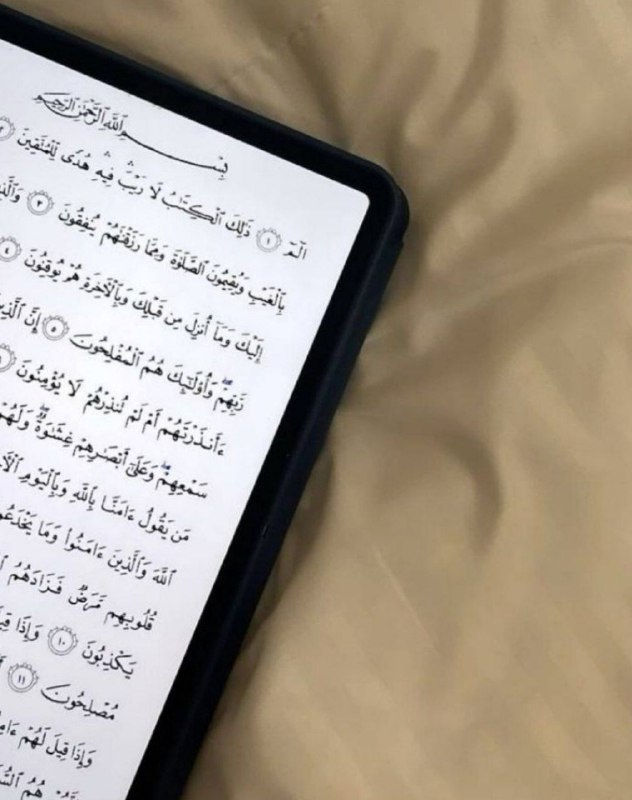 بِسْمِ ٱللَّهِ ٱلرَّحْمَٰنِ ٱلرَّحِيمِ
الٓمٓ ١ ذَٰلِكَ ٱلْكِتَٰبُ لَا رَيْبَ ۛ فِيهِ ۛ هُدًى لِّلْمُتَّقِينَ ٢
بِٱلْغَيْبِ وَيُقِيمُونَ ٱلصَّلَوٰةَ وَمِمَّا رَزَقْنَٰهُمْ يُنفِقُونَ ٣
إِلَيْكَ وَمَآ أُنزِلَ مِن قَبْلِكَ وَبِٱلْءَاخِرَةِ هُمْ يُوقِنُونَ ٤
رَّبِّهِمْ ۖ وَأُو۟لَٰٓئِكَ هُمُ ٱلْمُفْلِحُونَ ٥ إِنَّ
ءَأَنذَرْتَهُمْ أَمْ لَمْ تُنذِرْهُمْ لَا يُؤْمِنُونَ
سَمْعِهِمْ ۖ وَعَلَىٰٓ أَبْصَٰرِهِمْ غِشَٰوَةٌ ۖ وَلَهُمْ
مَن يَقُولُ ءَامَنَّا بِٱللَّهِ وَبِٱلْيَوْمِ
ٱللَّهَ وَٱلَّذِينَ ءَامَنُوا۟ وَمَا
قُلُوبِهِم مَّرَضٌ فَزَادَهُمُ
يَكْذِبُونَ ١٠ وَإِذَا
مُصْلِحُونَ ١١
وَإِذَا قِيلَ لَهُمْ
هُمُ